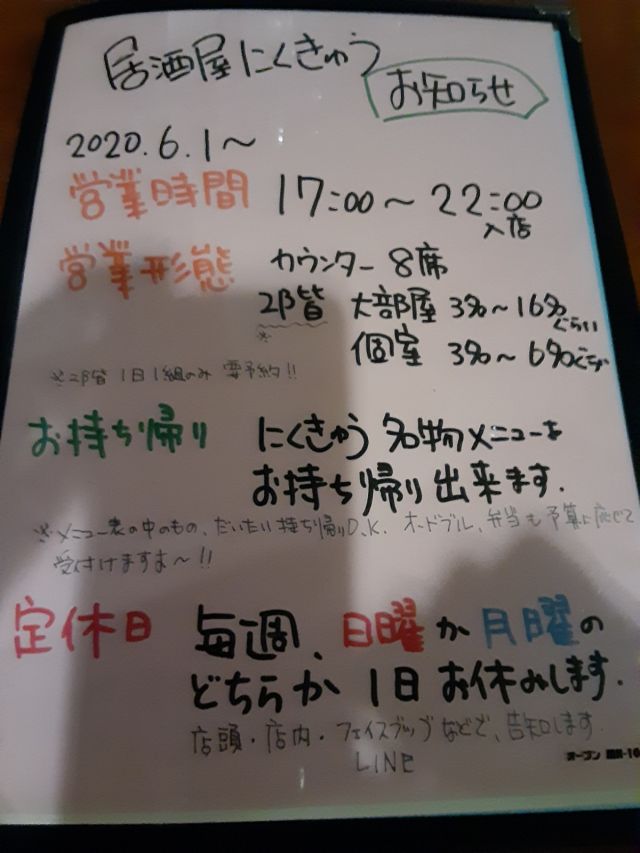 居酒屋にくきゅう
お知らせ
2020.6.1〜
営業時間 17:00〜22:00
入店
営業形態 カウンター 8席
2階 大部屋 3名〜16名ぐらい
※
個室 3名〜6名ぐらい
※2階 1日1組のみ 要予約!!
お持ち帰り にくきゅう名物メニューを
お持ち帰り出来ます.
※メニュー表の中のもの、だいたい持ち帰りO.K. オードブル、弁当も予算に応じて
受付けますよ〜!!
定休日 毎週、日曜か月曜の
どちらか1日お休みします.
店頭・店内・フェイスブックなどで、告知します.
LINE
オープン